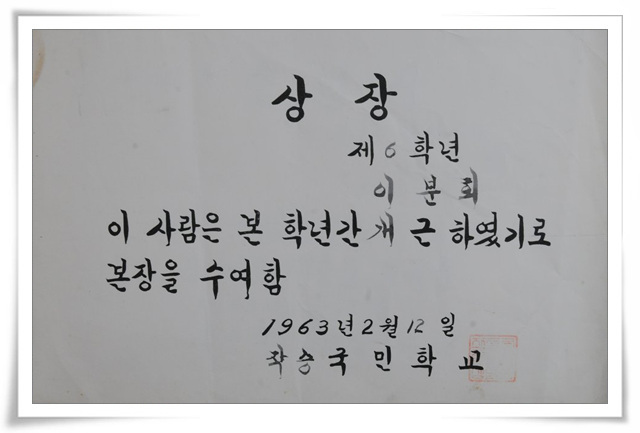 상 장
제 6 학년
이 분 희
이 사람은 본 학년간 개 근 하였기로
본장을 수여함
1963년 2월 12일
국 민 학 교